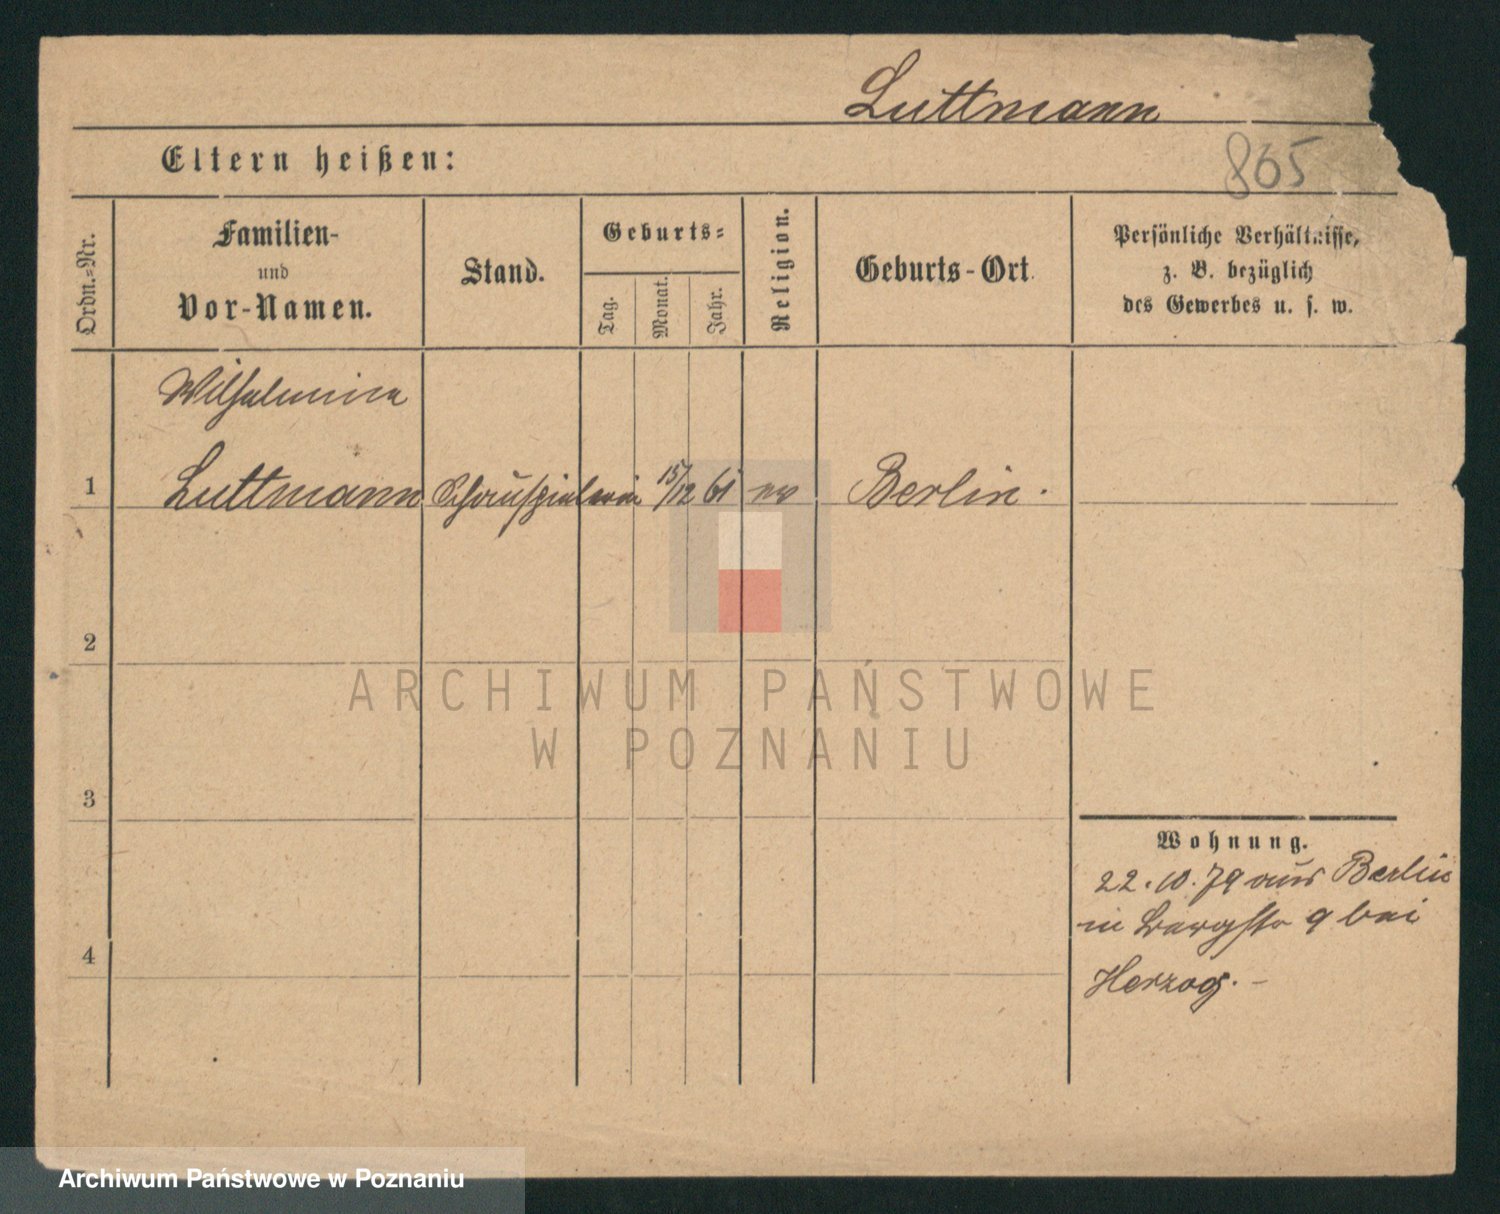 Luttmann
865
Eltern heißen:
Ordn.=Nr.
Familien-
und
Vor-Namen.
Stand.
Geburts=
Tag.
Monat.
Jahr.
Religion.
Geburts-Ort.
Persönliche Verhältnisse,
z. B. bezüglich
des Gewerbes u. s. w.
Wilhelmine
1 Luttmann Schauspielerin 15/12 61 ev Berlin.
2
3
4
Wohnung.
22.10.79 aus Berlin
in Bergstr 9 bei
Herzog. –
ARCHIWUM PAŃSTWOWE
W POZNANIU
Archiwum Państwowe w Poznaniu